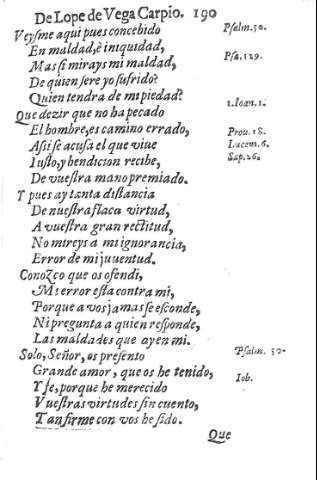 De Lope de Vega Carpio. 190
Veysme aqui pues concebido
Psalm.50.
En maldad, è iniquidad,
Mas si mirays mi maldad,
Psa.129.
De quien sere yo sufrido?
Quien tendra de mi piedad?
1.Ioan.1.
Que dezir que no ha pecado
El hombre, es camino errado,
Prou.18.
Assi se acusa el que viue
Lucem.6.
Iusto, y bendicion recibe,
Sap.26.
De vuestra mano premiado.
Y pues ay tanta distancia
De nuestra flaca virtud,
A vuestra gran rectitud,
No mireys a mi ignorancia,
Error de mi juuentud.
Conozco que os ofendi,
Mi error esta contra mi,
Porque a vos jamas se esconde,
Ni pregunta a quien responde,
Las maldades que ay en mi.
Solo, Señor, os presento
Psalm. 50.
Grande amor, que os he tenido,
Iob.
Y fe, porque he merecido
Vuestras virtudes sin cuento,
Tan firme con vos he sido.
Que